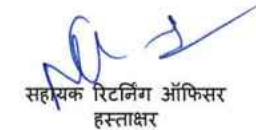 सहायक रिटर्निंग ऑफिसर
हस्ताक्षर